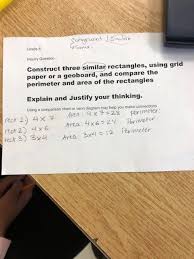 Grade 6
Inquiry Question
Construct three similar rectangles, using grid
paper or a geoboard, and compare the
perimeter and area of the rectangles
Explain and Justify your thinking.
Using a comparison chart or venn diagram may help you make connections
rect 1) 4 x 7 Area: 4 x 7 = 28 Perimeter:
rect 2) 4 x 6 Area: 4 x 6 = 24 Perimeter
rect 3) 3x4 Area: 3x4 = 12 Perimeter